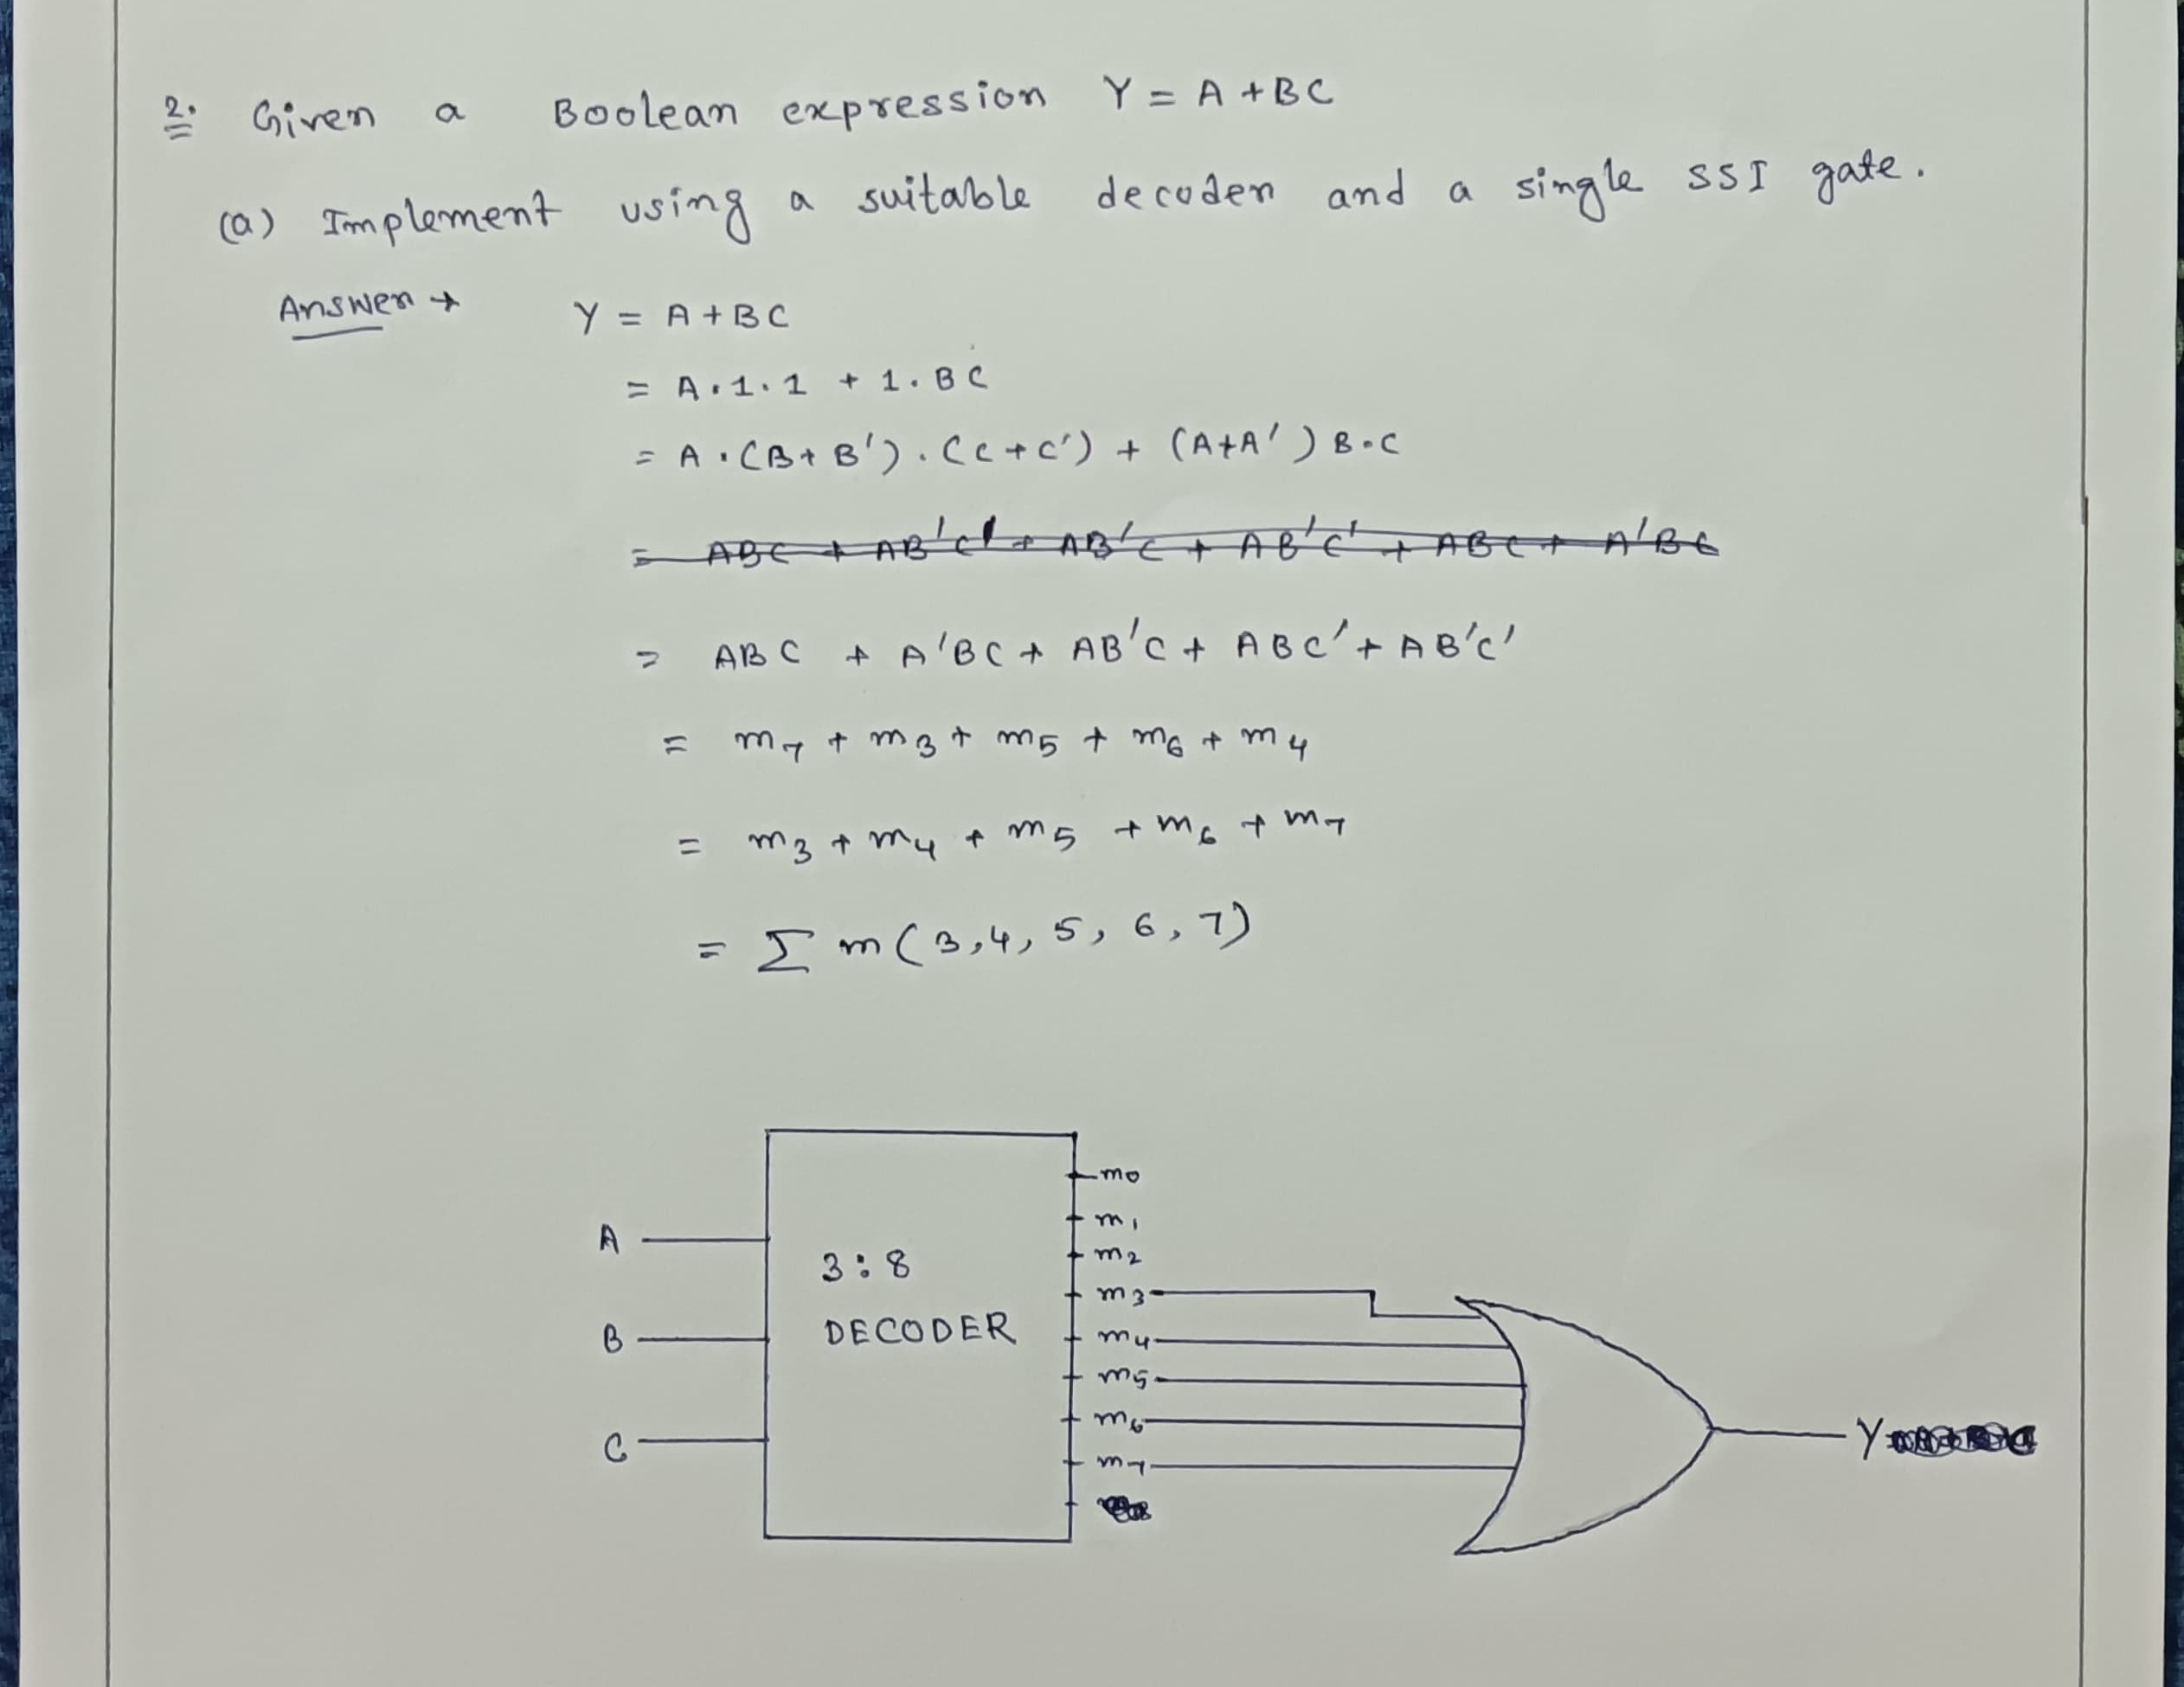 2. Given a Boolean expression Y = A + BC
(a) Implement using a suitable decoder and a single SSI gate.
Answer → Y = A + BC
= A.1.1 + 1.BC
= A.(B+B').(C+C') + (A+A')B.C
= ABC + AB'C' + AB'C + AB'C' + ABC + A'BC
= ABC + A'BC + AB'C + ABC' + AB'C'
= m7 + m3 + m5 + m6 + m4
= m3 + m4 + m5 + m6 + m7
= Σ m(3,4,5,6,7)
m0
m1
A
3:8
m2
m3
B
DECODER
m4
m5
m6
C
m7
Y